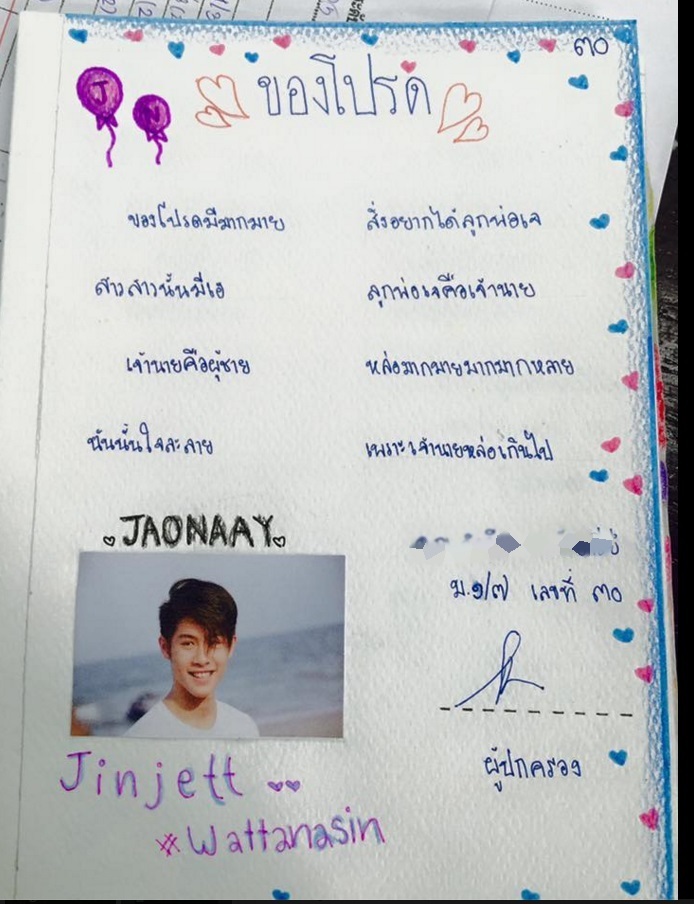 ๓๐
J N
ของโปรด
ของโปรดมีมากมาย สิ่งอยากได้ลูกพ่อเจ
สาวสาวนั้นมีเฮ ลูกพ่อเจคือเจ้านาย
เจ้านายคือผู้ชาย หล่อมากมายมากมากหลาย
ฉันนั้นใจละลาย เพราะเจ้านายหล่อเกินไป
JAONAAY
ม.๑/๗ เลขที่ ๓๐
ผู้ปกครอง
Jinjett
#Wattanasin